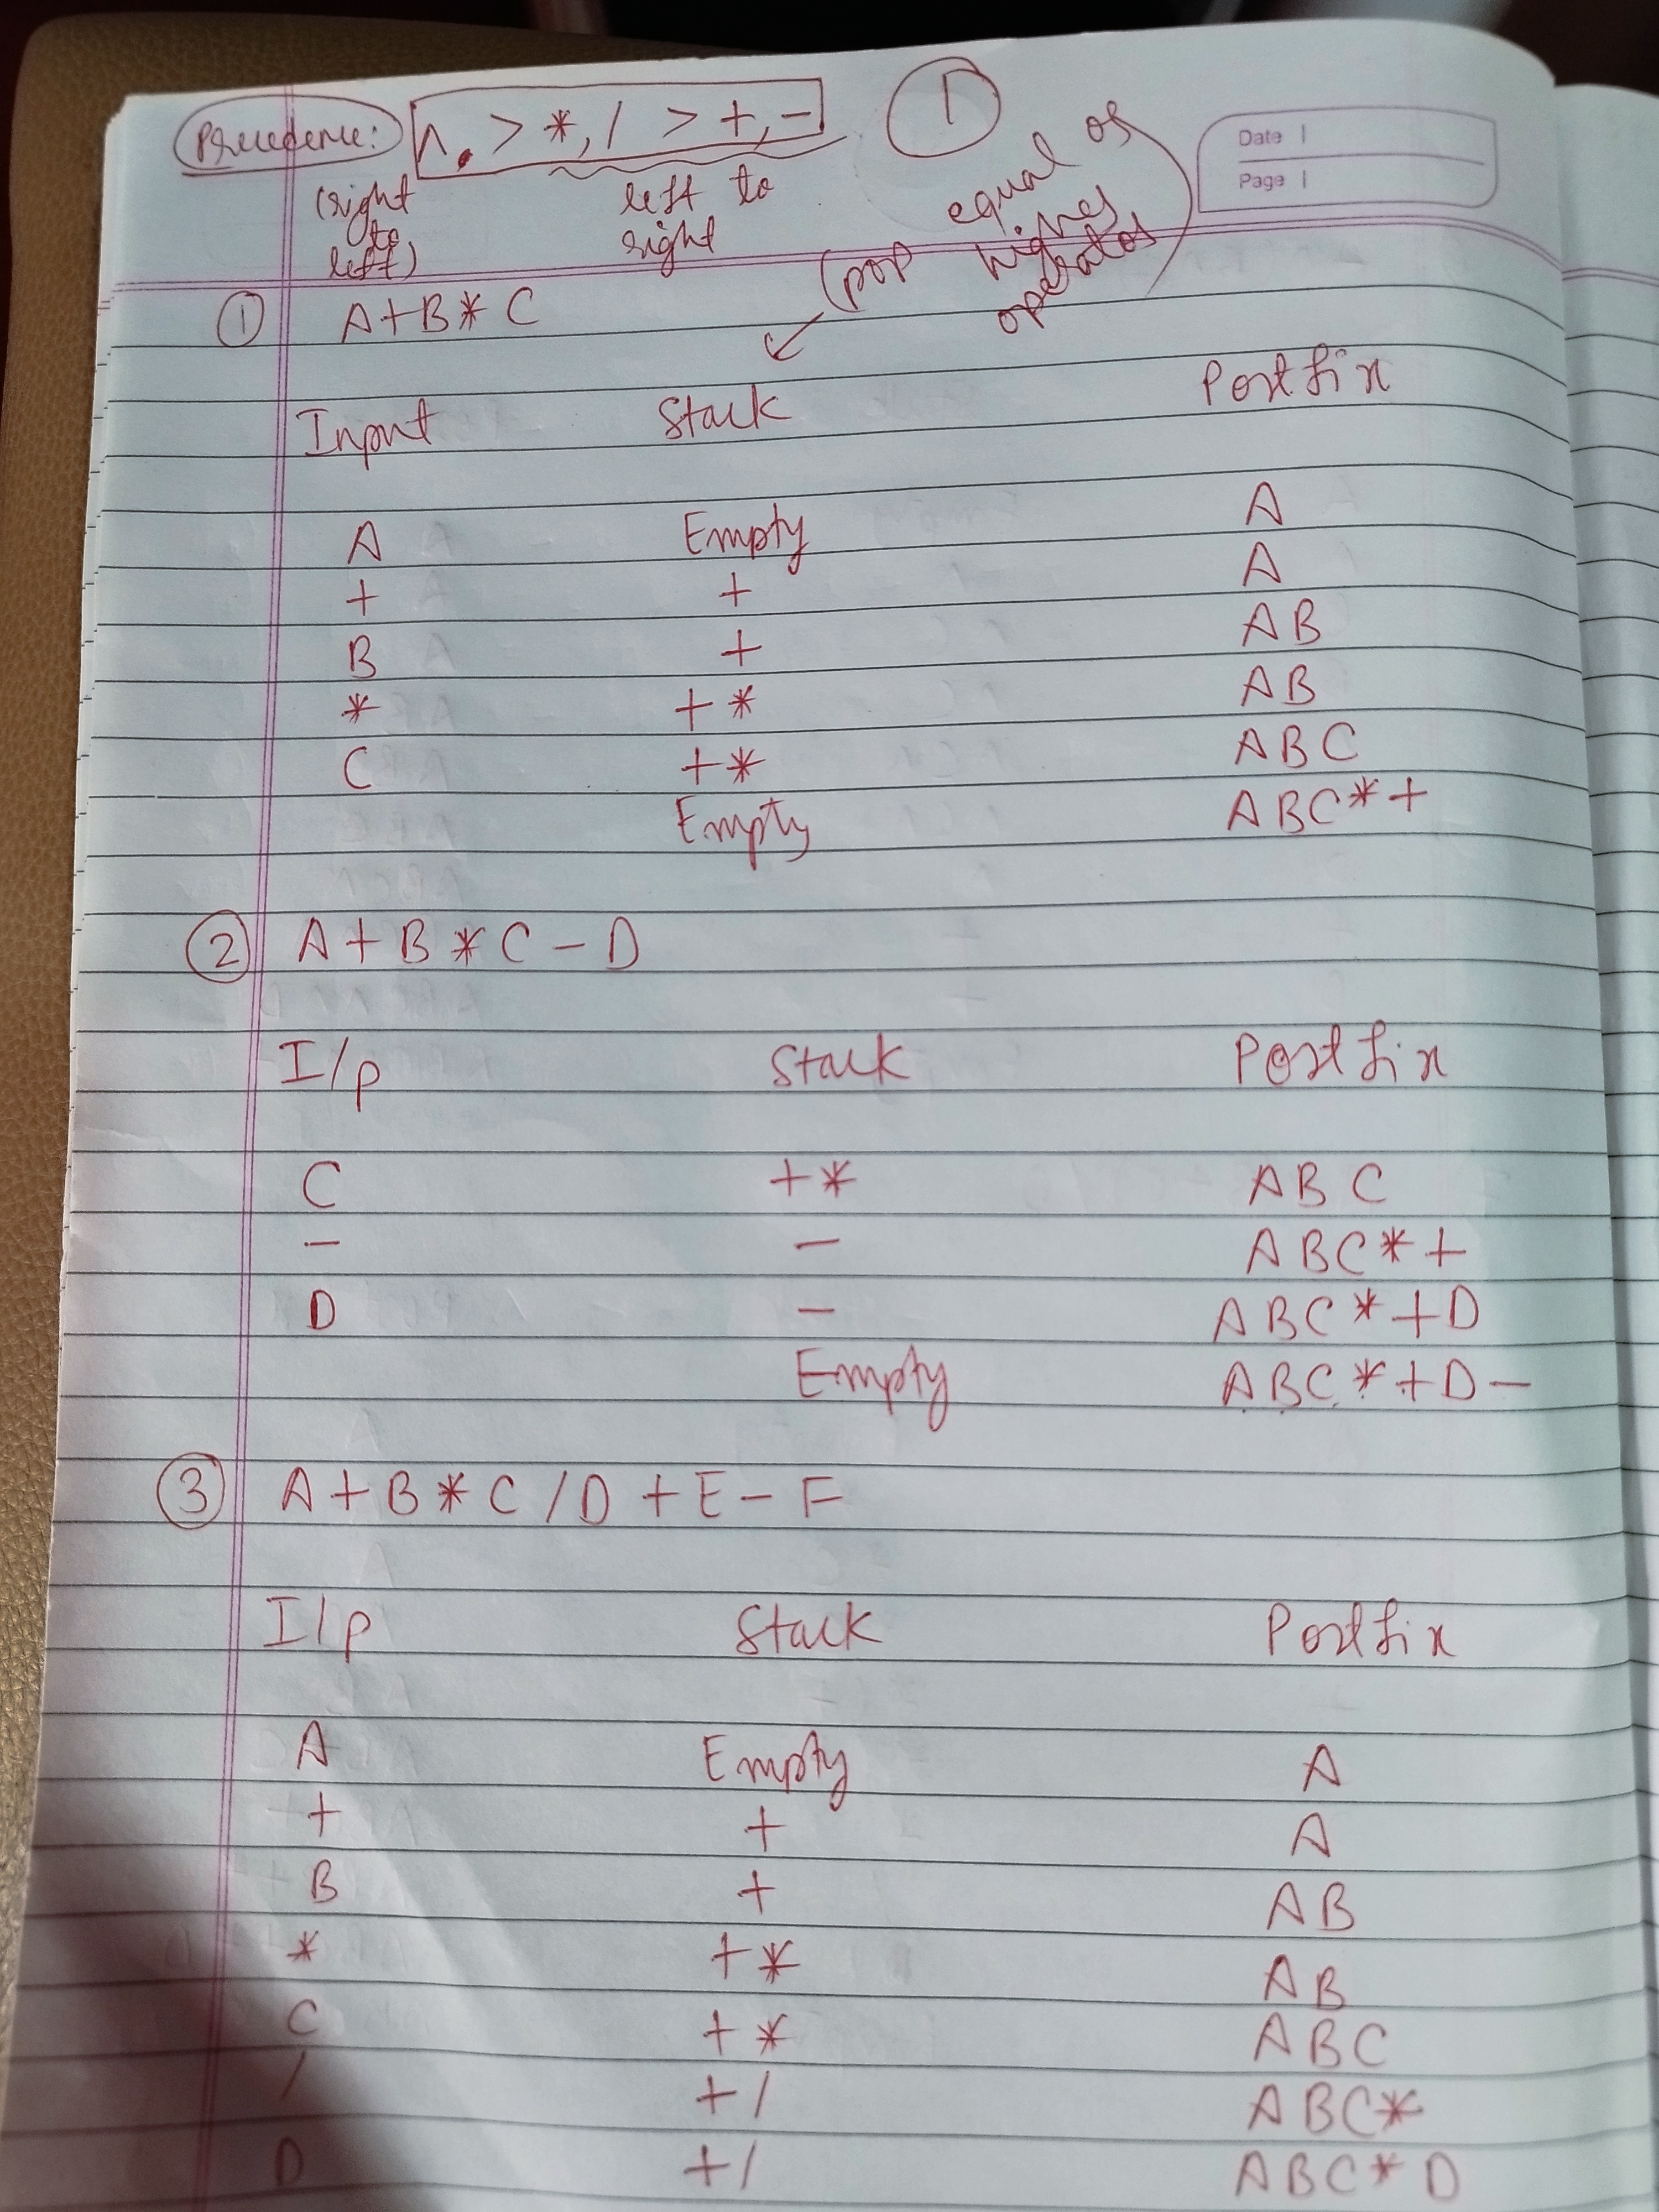 Precedence: ^ > *, / > +, - ①
Date
Page
(right to left)
left to right
(pop equal or higher operator)
① A+B*C
Input Stack Postfix
A Empty A
+ + A
B + AB
* +* AB
C +* ABC
Empty ABC*+
② A+B*C-D
I/p Stack Postfix
C +* ABC
- - ABC*+
D - ABC*+D
Empty ABC*+D-
③ A+B*C/D+E-F
I/p Stack Postfix
A Empty A
+ + A
B + AB
* +* AB
C +* ABC
/ +/ ABC*
D +/ ABC*D